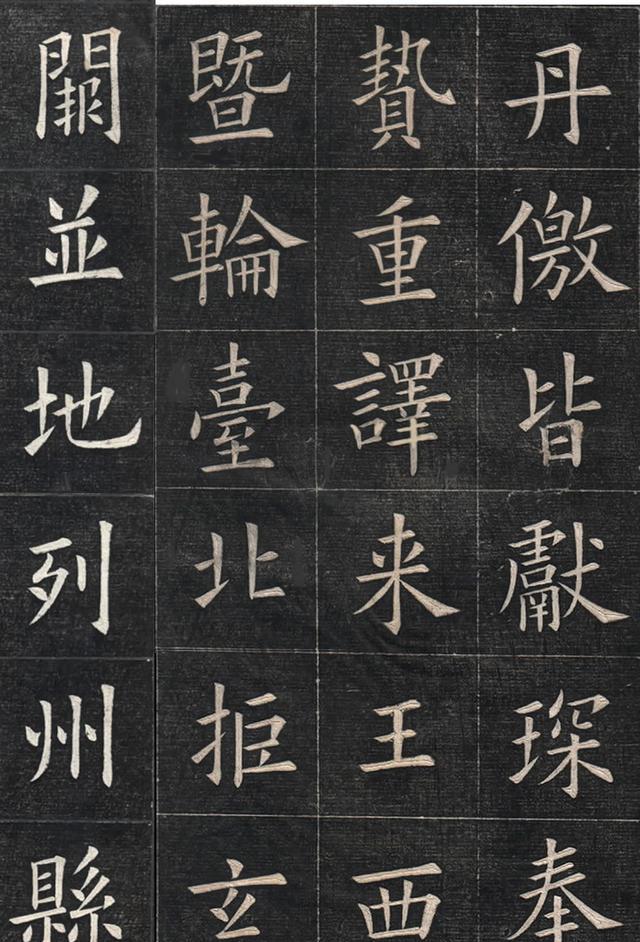 丹儌皆獻琛奉
贄重譯来王西
暨輪臺北拒玄
闕並地列州縣